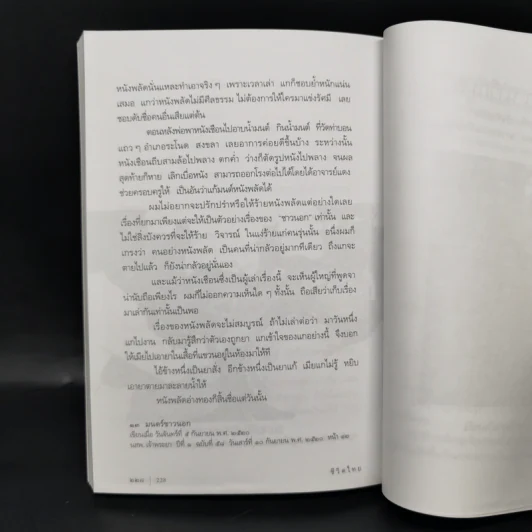 หนังพลัดนั่นแหละทำเอาจริงๆ เพราะเวลาเล่า แกก็ชอบย้ำหนักแน่น
เสมอ แกว่าหนังพลัดไม่มีศีลธรรม ไม่ต้องการให้ใครมาแข่งรัศมี เลย
ชอบดับชื่อคนอื่นเสียแต่ต้น
ตอนหลังพ่อพาหนังเชือนไปอาบน้ำมนต์ กินน้ำมนต์ ที่วัดท่าบอน
แถวๆ อำเภอระโนด สงขลา เลยอาการค่อยดีขึ้นบ้าง ระหว่างนั้น
หนังเชือนถีบสามล้อไปพลาง ตกค่ำ ว่างก็ตัดรูปหนังไปพลาง จนผล
สุดท้ายก็หาย เลิกเบื่อหนัง สามารถออกโรงต่อไปได้โดยได้อาจารย์แดง
ช่วยครอบครูให้ เป็นอันว่าแก้มนต์หนังพลัดได้
ผมไม่อยากจะปรักปรำหรือให้ร้ายหนังพลัดแต่อย่างใดเลย
เรื่องที่ยกมาเพียงแต่จะให้เป็นตัวอย่างเรื่องของ "ชาวนอก" เท่านั้น และ
ไม่ใช่สิ่งบังควรที่จะให้ร้าย วิจารณ์ ในแง่ร้ายแก่คนรุ่นนั้น อนึ่งผมก็
เกรงว่า คนอย่างหนังพลัด เป็นคนที่น่ากลัวอยู่มากทีเดียว ถึงแกจะ
ตายไปแล้ว ก็ยังน่ากลัวอยู่นั่นเอง
และแม้ว่าหนังเชือนซึ่งเป็นผู้เล่าเรื่องนี้ จะเห็นผู้ใหญ่ที่พูดจา
น่านับถือเพียงไร ผมก็ไม่ออกความเห็นใดๆ ทั้งนั้น ถือเสียว่าเก็บเรื่อง
มาเล่ากันเท่านั้นเป็นพอ
เรื่องของหนังพลัดจะไม่สมบูรณ์ ถ้าไม่เล่าต่อว่า มาวันหนึ่ง
แกไปงาน กลับมารู้สึกว่าตัวเองถูกยา แกเข้าใจของแกอย่างนี้ จึงบอก
ให้เมียไปเอายาในเสื้อที่แขวนอยู่ในห้องมาให้ที
ไอ้ข้างหนึ่งเป็นยาสั่ง อีกข้างหนึ่งเป็นยาแก้ เมียแกไม่รู้ หยิบ
เอายาตายมาละลายน้ำให้
หนังพลัดอ่างทองก็สิ้นชื่อแต่วันนั้น
๑๓ มนตร์ชาวนอก
เขียนเมื่อ วันจันทร์ที่ ๕ กันยายน พ.ศ. ๒๕๒๐
นสพ. เจ้าพระยา ปีที่ ๑ ฉบับที่ ๕๘ วันเสาร์ที่ ๑๐ กันยายน พ.ศ. ๒๕๒๐ หน้า
๒๒๘ | 228
ชีวิตไทย